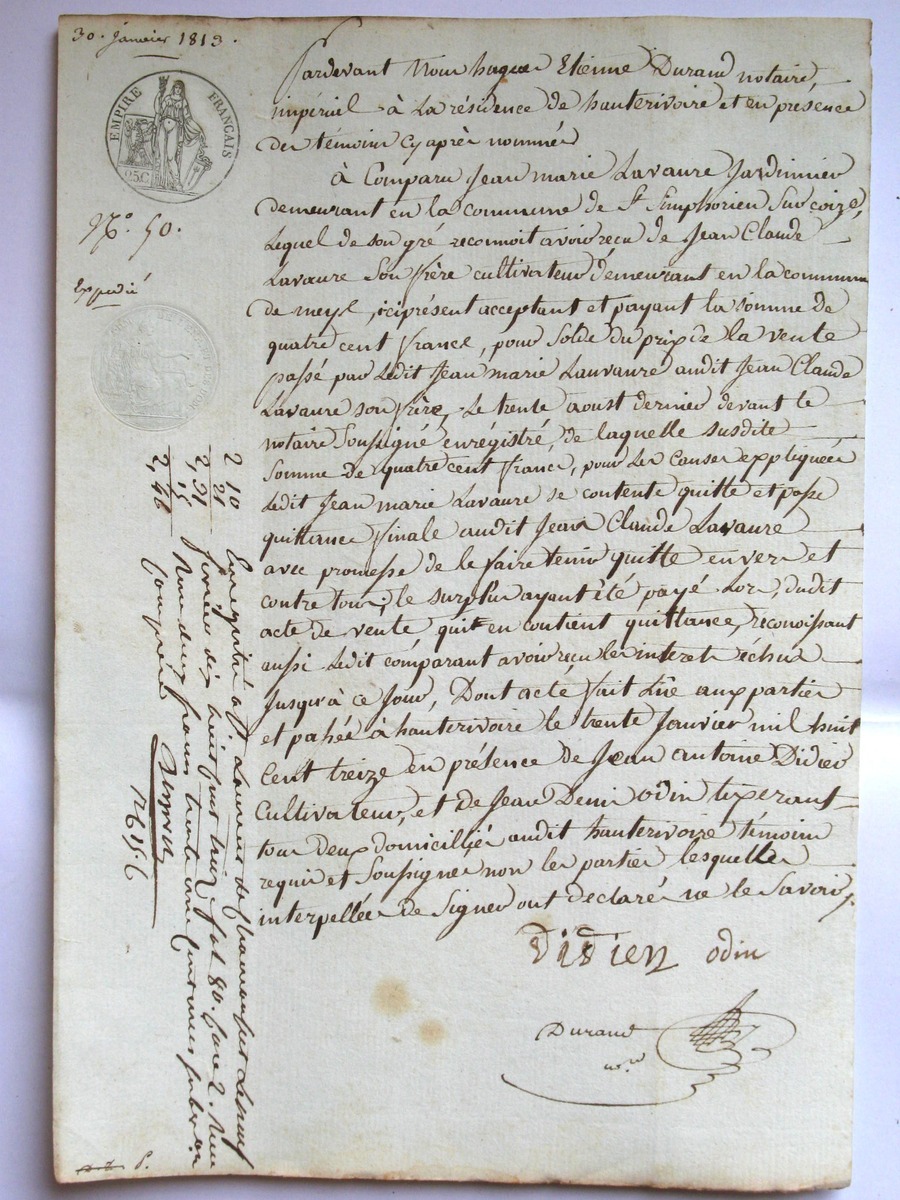 30. janvier 1813.
EMPIRE FRANÇAIS
05.C
N.° 50.
Expedié
Pardevant Nous Etienne Durand notaire
impériel à La résidence de hauterivoire et en présence
des témoins Cy après nommés
à Comparu Jean marie Lavaure Jardinnier
demeurant en la commune de St. Simphorien Sur coize,
Lequel de son gré reconnoit avoir reçu de Jean Claude
Lavaure Son frère cultivateur demeurant en la commune
de meys, ici présent acceptant et payant la somme de
quatre cent francs, pour Solde du prix de la vente
passé par Ledit Jean marie Lauvaure audit Jean Claude
Lavaure son frère, Le trente aoust dernier devant le
notaire Soussigné enrégistré, de laquelle susdite
somme de quatre cent francs, pour Les Causes expliquées
Ledit Jean marie Lavaure se contente quitte et passe
quittance finale audit Jean Claude Lavaure
avec promesse de le faire tenir quitte envers et
contre tous; le surplus ayant été payé Lors, dudit
acte de vente qui en contient quittance, reconoissant
aussi Ledit comparant avoir reçu les interets échus
Jusqu'à ce Jour, Dont acte, fait Lûe aux parties
et passée à hauterivoire le trente Janvier mil huit
cent treize en présence de Jean antoine Didier
Cultivateur, et de Jean Denis odin tixerant
tous deux domicilliés audit hauterivoire témoins
requis et Soussignés non les parties lesquelles
interpellées de Signer ont déclaré ne le Savoir.
Didier odin
Durand
nre
2 10
21
2,31
15
2,46
Enregistré à St. Laurent de Chamousset Le neuf
février dix huit cent treize fol. 80. Case 2. Reçu
deux francs trente un centimes subvon
Comprise